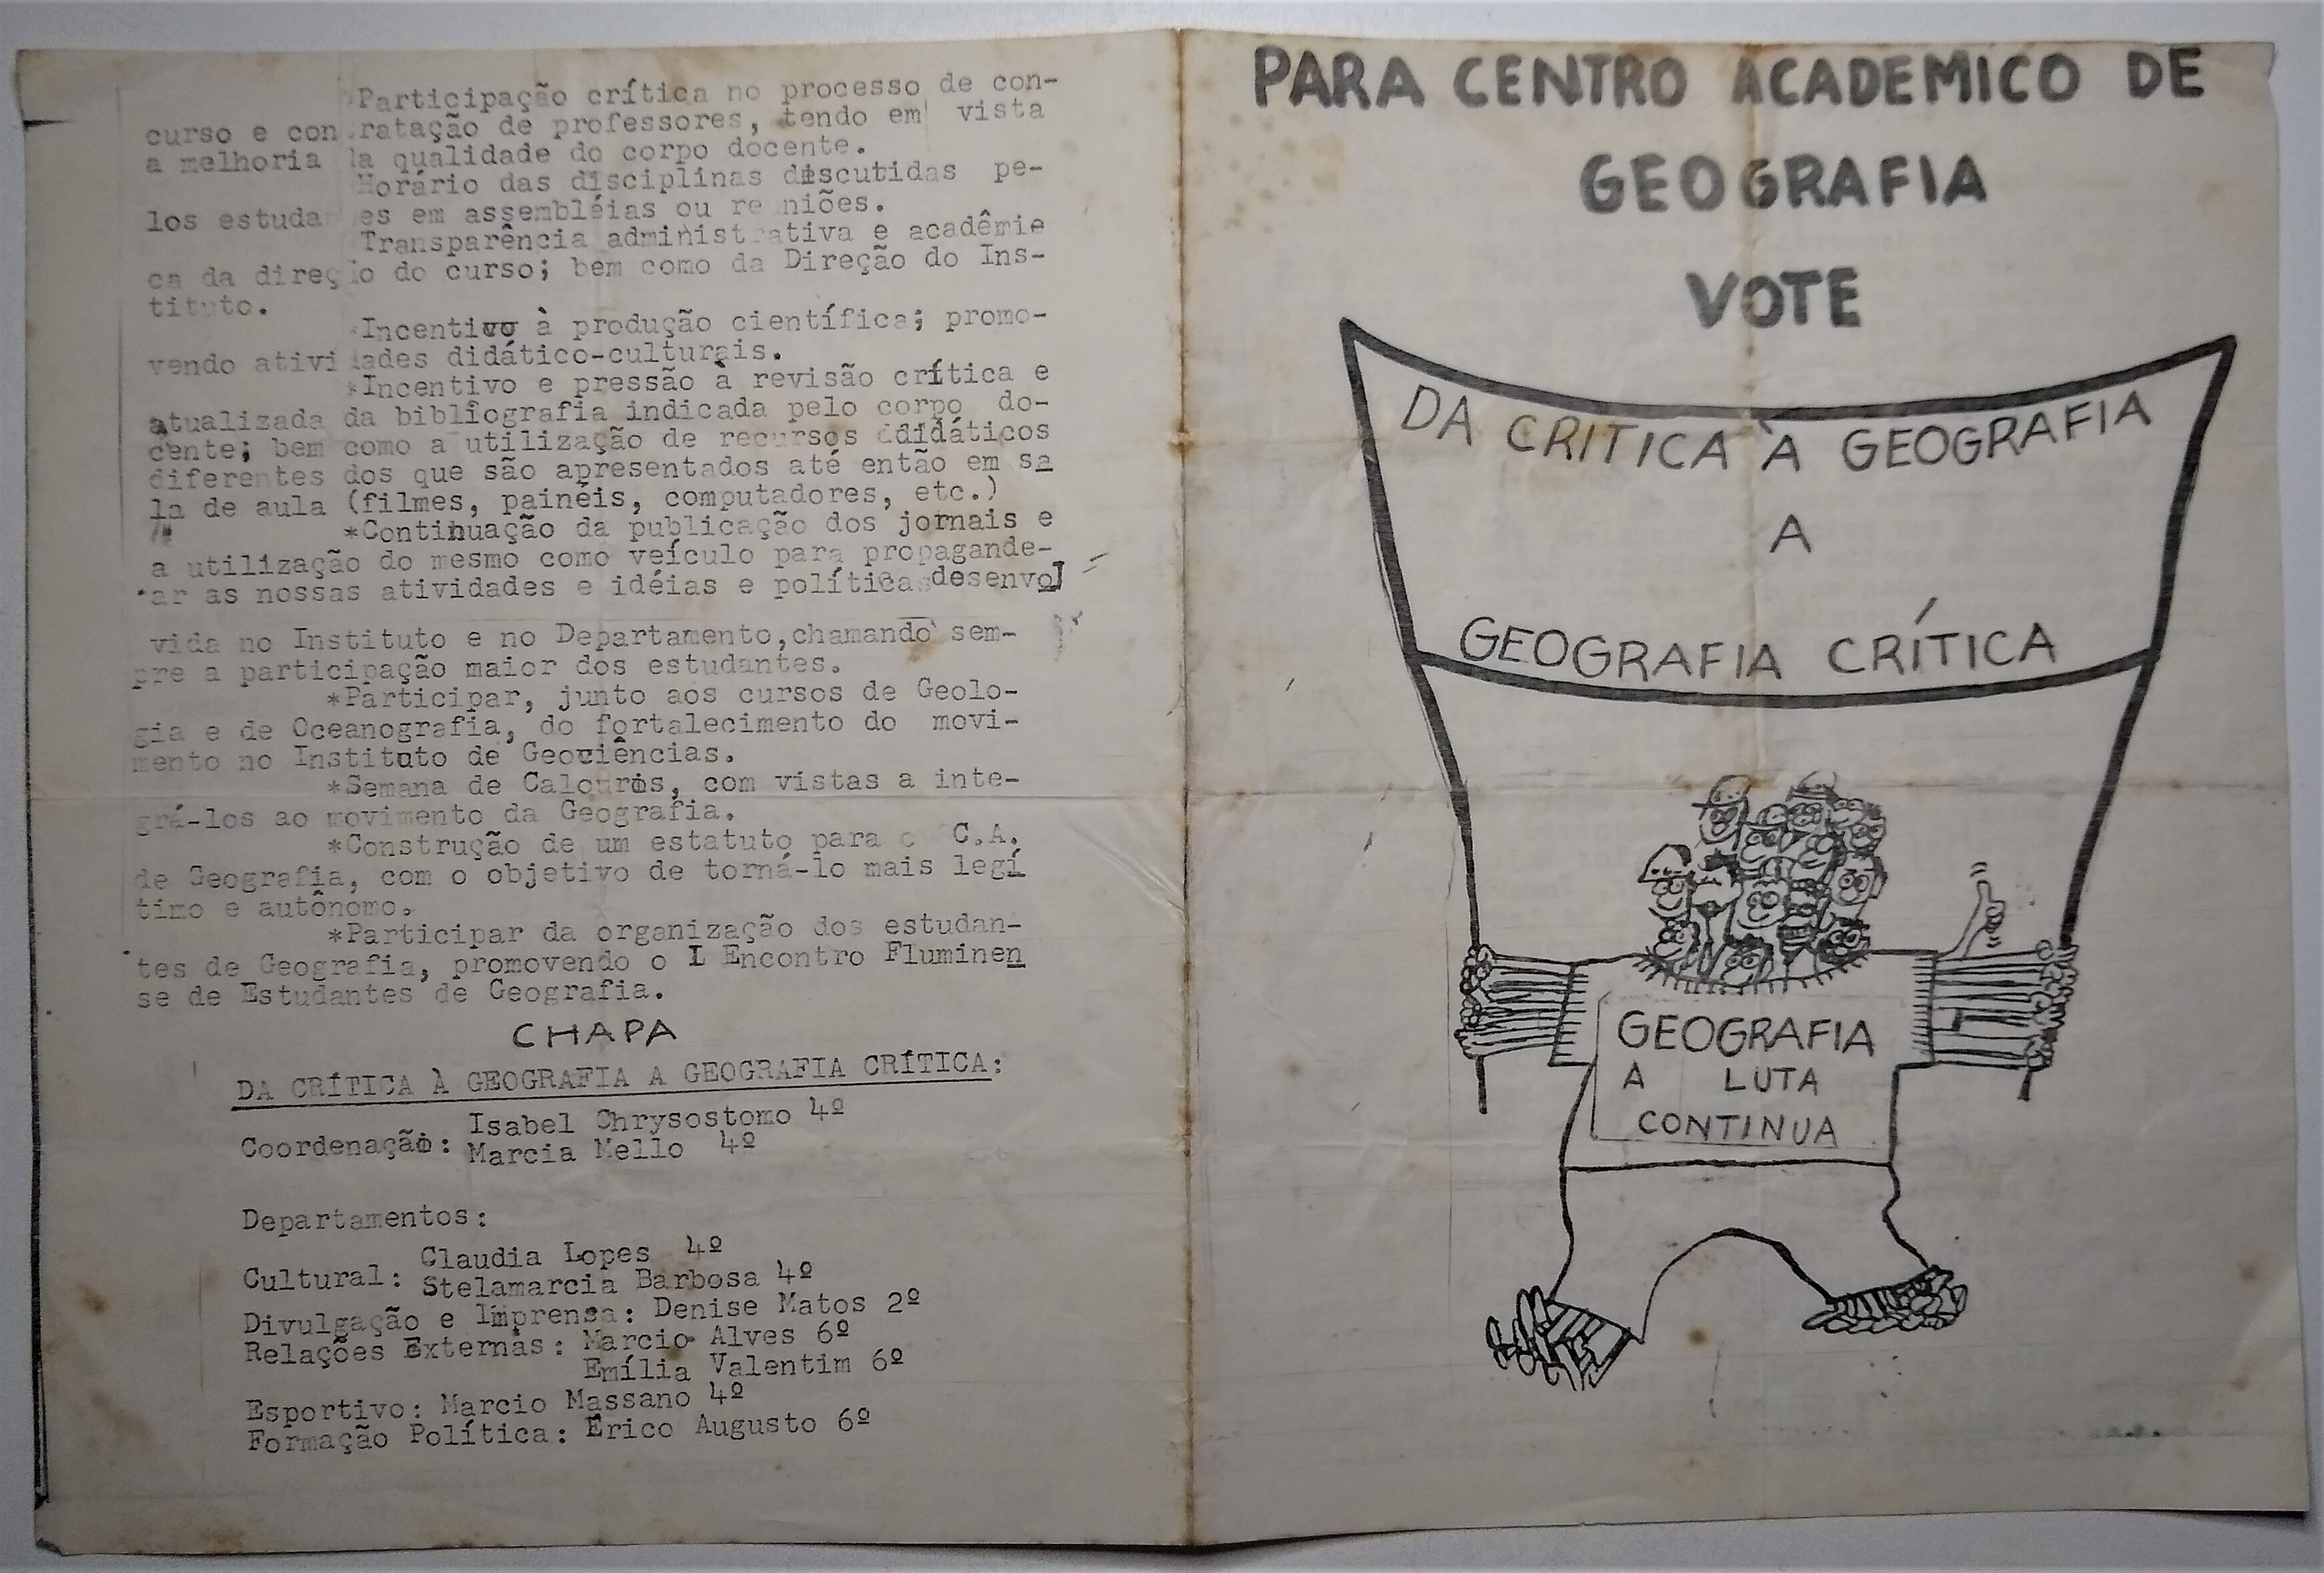 *Participação crítica no processo de con-
curso e contratação de professores, tendo em vista
a melhoria da qualidade do corpo docente.
*Horário das disciplinas discutidas pe-
los estudantes em assembléias ou reuniões.
*Transparência administrativa e acadêmie
ca da direção do curso; bem como da Direção do Ins-
tituto.
*Incentivo à produção científica; promo-
vendo atividades didático-culturais.
*Incentivo e pressão à revisão crítica e
atualizada da bibliografia indicada pelo corpo do-
cente; bem como a utilização de recursos ddidáticos
diferentes dos que são apresentados até então em sa
la de aula (filmes, painéis, computadores, etc.)
*Continuação da publicação dos jornais e
a utilização do mesmo como veículo para propagande-
ar as nossas atividades e idéias e políticas desenvol
vida no Instituto e no Departamento, chamando sem-
pre a participação maior dos estudantes.
*Participar, junto aos cursos de Geolo-
gia e de Oceanografia, do fortalecimento do movi-
mento no Instituto de Geociências.
*Semana de Calouros, com vistas a inte-
grá-los ao movimento da Geografia.
*Construção de um estatuto para o C.A.
de Geografia, com o objetivo de torná-lo mais legí
timo e autônomo.
*Participar da organização dos estudan-
tes de Geografia, promovendo o I Encontro Fluminen
se de Estudantes de Geografia.
CHAPA
DA CRÍTICA À GEOGRAFIA A GEOGRAFIA CRÍTICA:
Coordenação: Isabel Chrysostomo 4º
Marcia Mello 4º
Departamentos:
Cultural: Claudia Lopes 4º
Stelamarcia Barbosa 4º
Divulgação e Imprensa: Denise Matos 2º
Relações Externas: Marcio Alves 6º
Emília Valentim 6º
Esportivo: Marcio Massano 4º
Formação Política: Érico Augusto 6º
PARA CENTRO ACADEMICO DE
GEOGRAFIA
VOTE
DA CRITICA À GEOGRAFIA
A
GEOGRAFIA CRÍTICA
GEOGRAFIA
A LUTA
CONTINUA